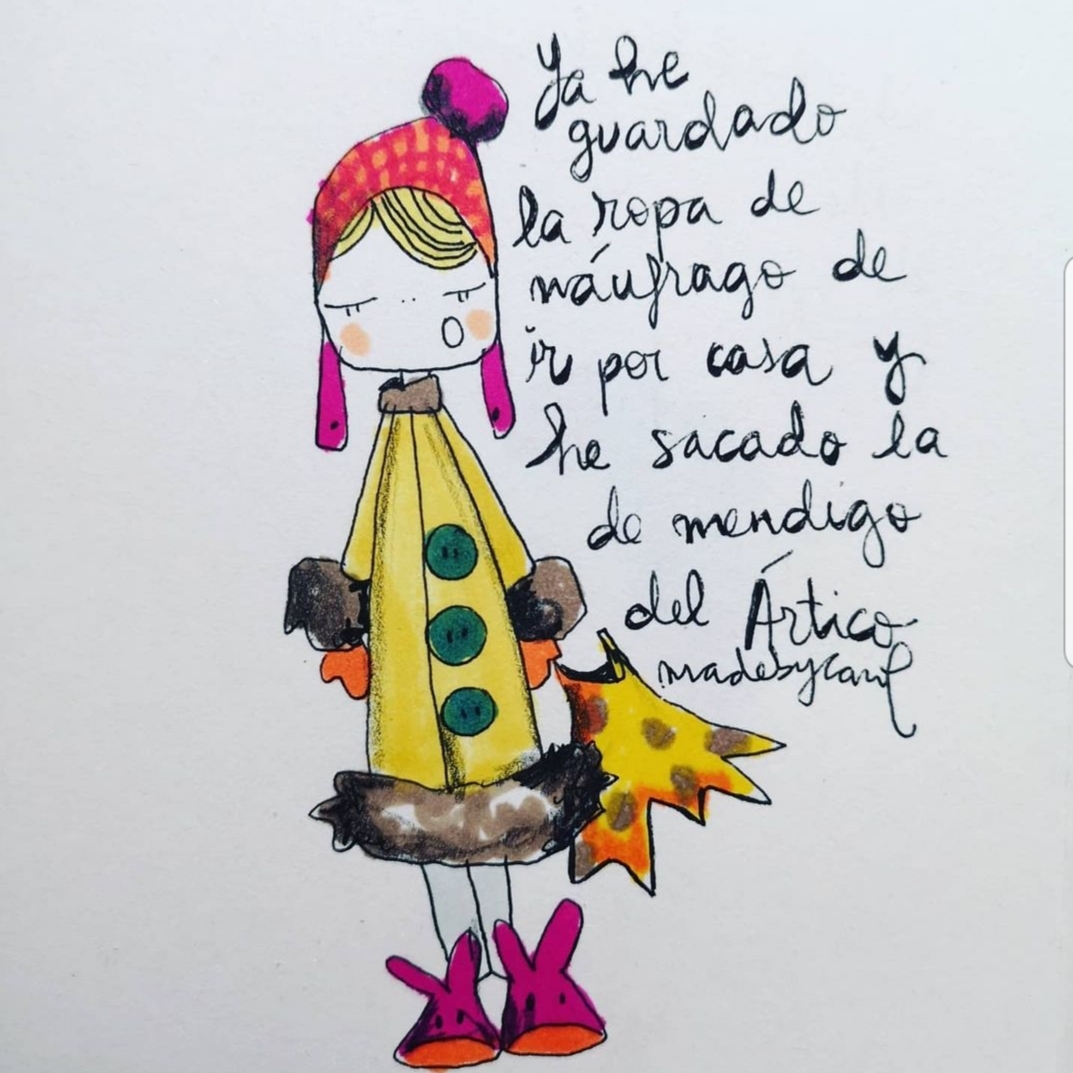 Ya he
guardado
la ropa de
náufrago de
ir por casa y
he sacado la
de mendigo
del Ártico
madebycarol